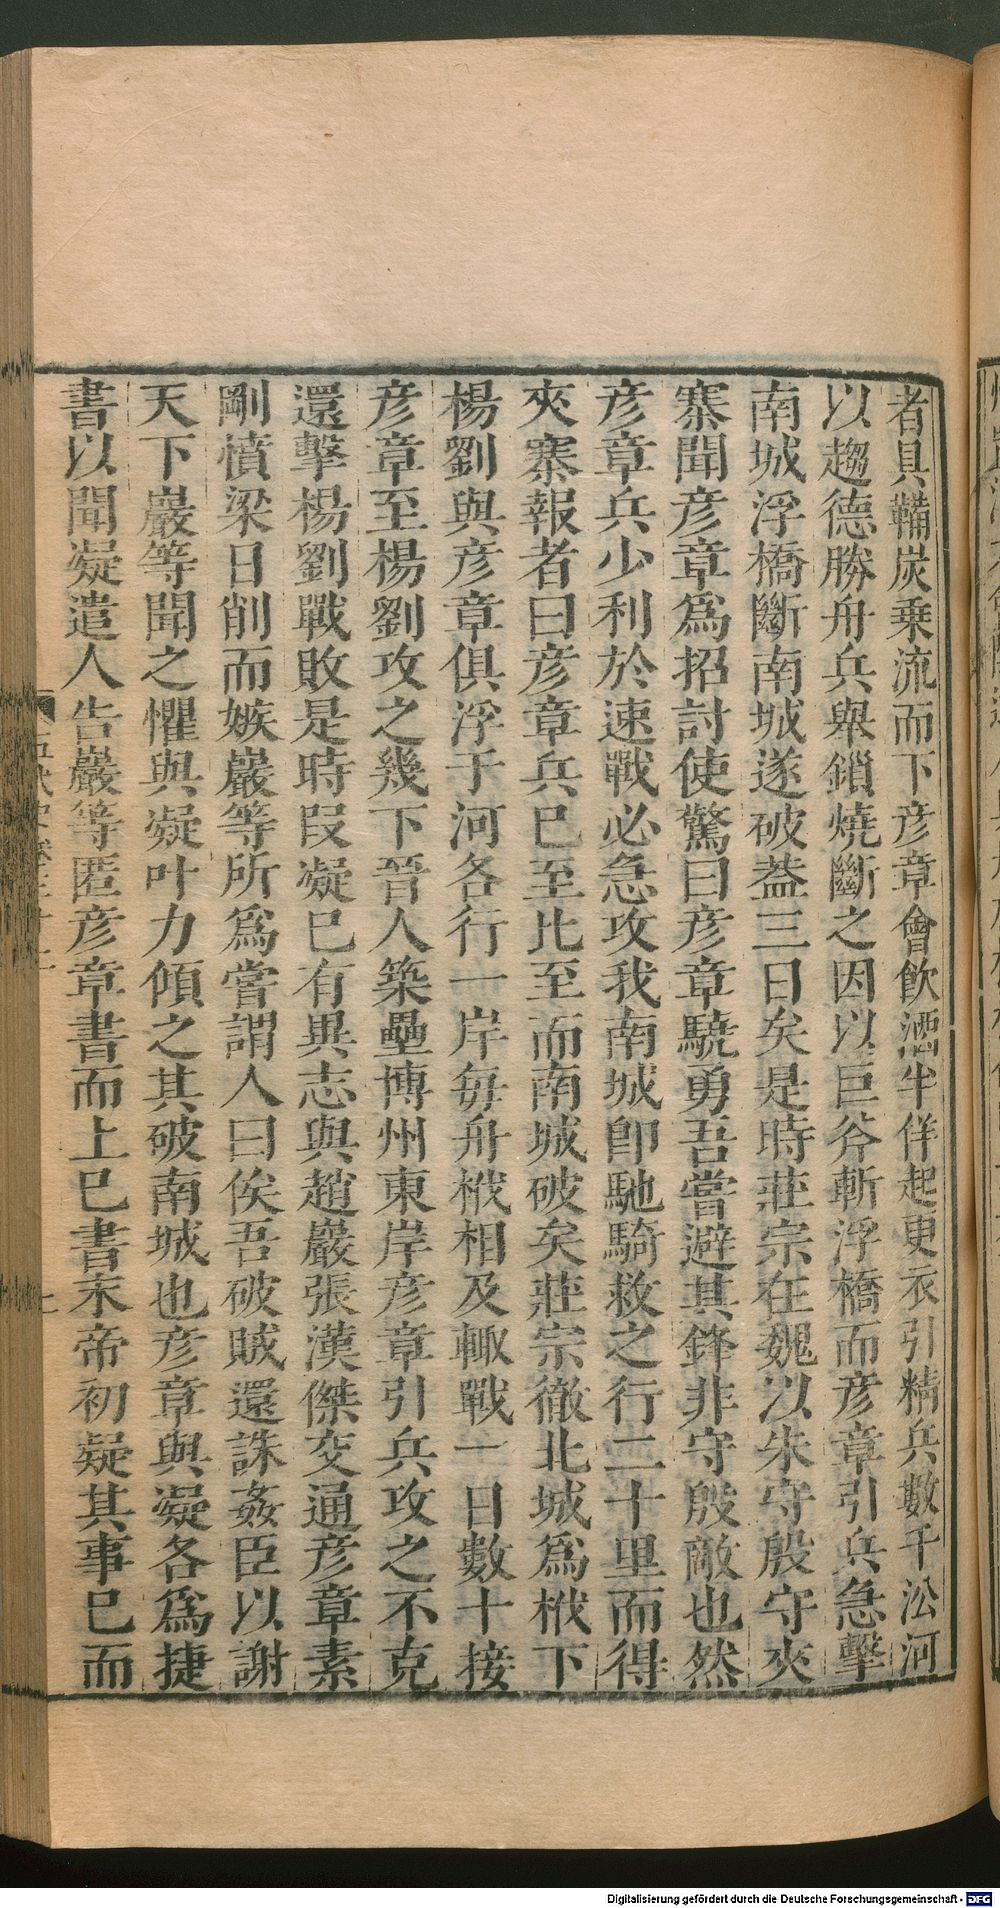 者具鞴炭乗流而下彦章會飲酒半佯起更衣引精兵數千㳂河
以趨德勝舟兵舉鎖燒斷之因以巨斧斬浮橋而彦章引兵急擊
南城浮橋斷南城遂破葢三日矣是時莊宗在魏以朱守殷守夾
寨聞彦章爲招討使驚曰彦章驍勇吾嘗避其鋒非守殷敵也然
彦章兵少利於速戰必急攻我南城卽馳騎救之行二十里而得
夾寨報者曰彦章兵已至比至而南城破矣莊宗徹北城爲栰下
楊劉與彦章俱浮于河各行一岸每舟栰相及輙戰一日數十接
彦章至楊劉攻之幾下晉人築壘博州東岸彦章引兵攻之不克
還擊楊劉戰敗是時叚凝已有異志與趙巖張漢傑交通彦章素
剛憤梁日削而嫉巖等所爲嘗謂人曰俟吾破賊還誅姦臣以謝
天下巖等聞之懼與凝叶力傾之其破南城也彦章與凝各爲捷
書以聞凝遣人告巖等匿彦章書而上已書末帝初疑其事已而
Digitalisierung gefördert durch die Deutsche Forschungsgemeinschaft - DFG